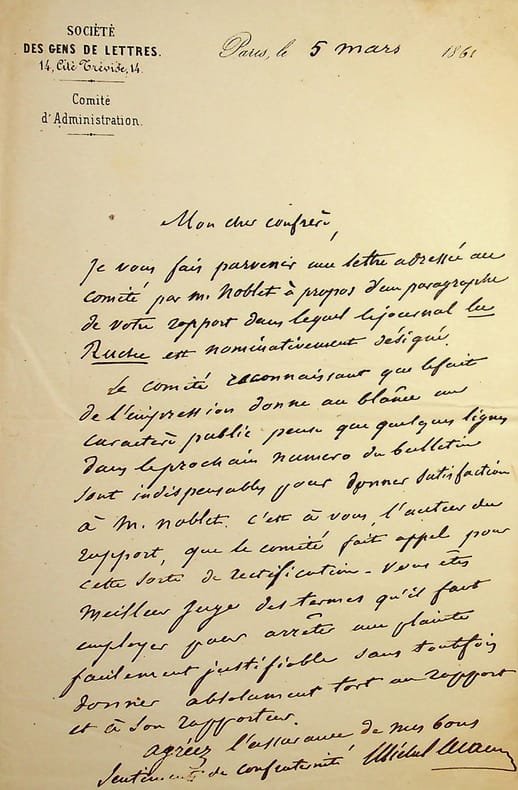 SOCIÉTÉ
DES GENS DE LETTRES.
14, Cité Trévise, 14.
Comité
d'Administration.
Paris, le 5 mars 1861
Mon cher confrère,
Je vous fais parvenir une lettre adressée au
comité par M. Noblet à propos d'un paragraphe
de votre rapport dans lequel le journal la
Ruche est nominativement désigné.
Le comité reconnaissant que le fait
de l'impression donne au blâme un
caractère public pense que quelques lignes
dans le prochain numero du bulletin
sont indispensables pour donner satisfaction
à M. Noblet. C'est à vous, l'auteur du
rapport, que le comité fait appel pour
cette sorte de rectification - Vous êtes
meilleur juge des termes qu'il faut
employer pour arrêter une plainte
facilement justifiable sans toutefois
donner absolument tort au rapport
et à son rapporteur.
agréez l'assurance de mes bons
sentiments de confraternité Michel Masson